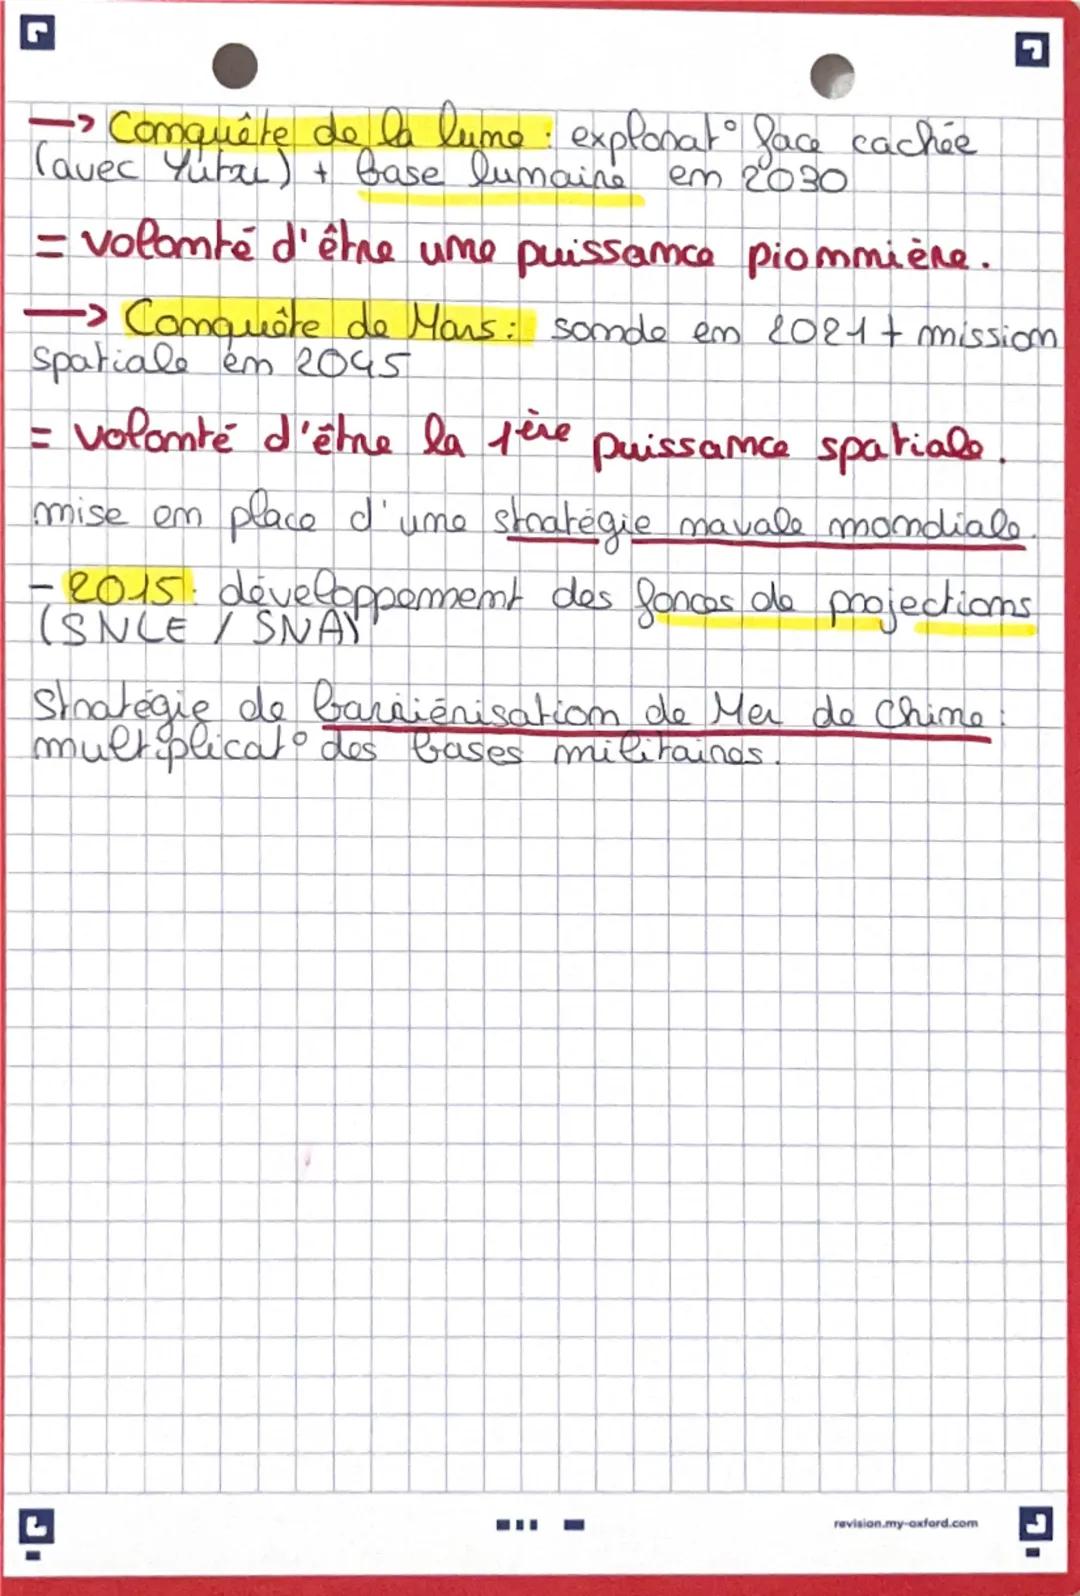 → Conquête de la lune : explorat° face cachée
(avec Yutu) + base lunaire en 2030
= volonté d'être une puissance pionnière.
→ Conquête de Mars : sonde en 2021 + mission
spatiale en 2045
= volonté d'être la 1ère puissance spatiale.
mise en place d'une stratégie navale mondiale.
- 2015 : développement des forces de projections
(SNLE / SNA)
Stratégie de barriérisation de Mer de Chine :
multiplicat° des bases militaires.
revision.my-oxford.com